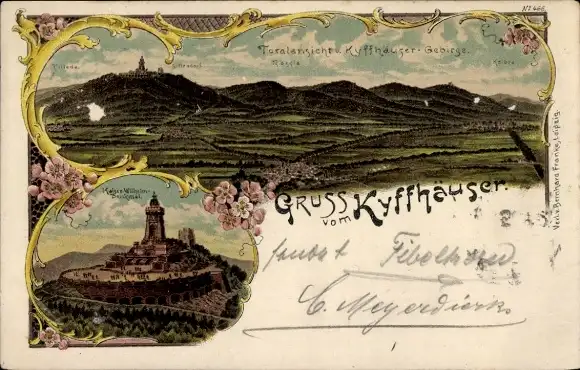 No 466.
Totalansicht v. Kyffhäuser-Gebirge.
Tilleda.
Kelbra
Kaiser Wilhelm-
Denkmal.
GRUSS
vom Kyffhäuser.
Verl. v. Bernhard Franke, Leipzig.
sendet
C. Meyerdierks